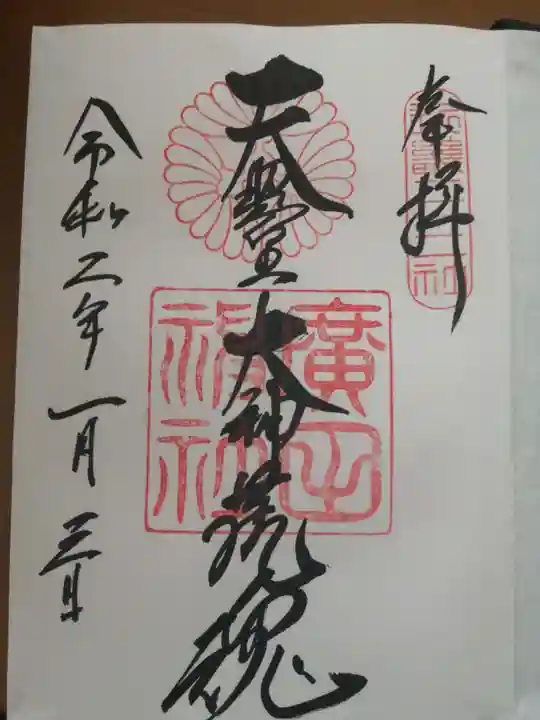 奉拝
天照皇大神荒魂
廣田
神社
令和二年一月三日